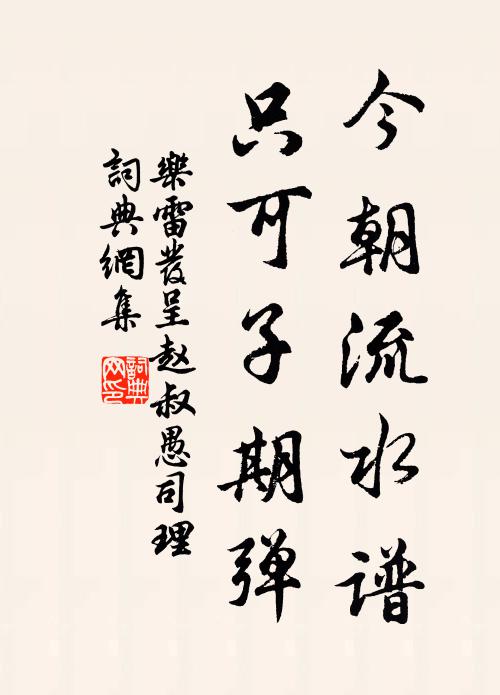 今朝流水谱
只可子期弹
樂雷发呈赵叔愚司理
詞典網集
詞典网印